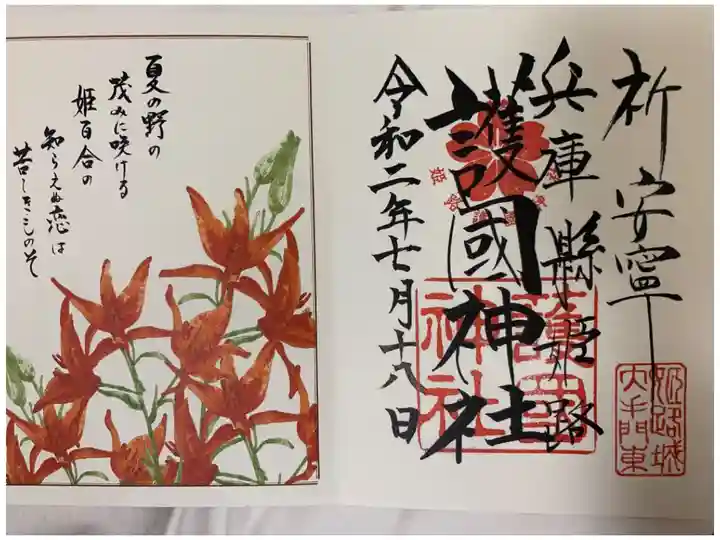 祈安寧
兵庫縣姫路
護國神社
令和二年七月十八日
護国
神社
姫路城
大手門東
夏の野の
茂みに咲ける
姫百合の
知らえぬ恋は
苦しきものぞ